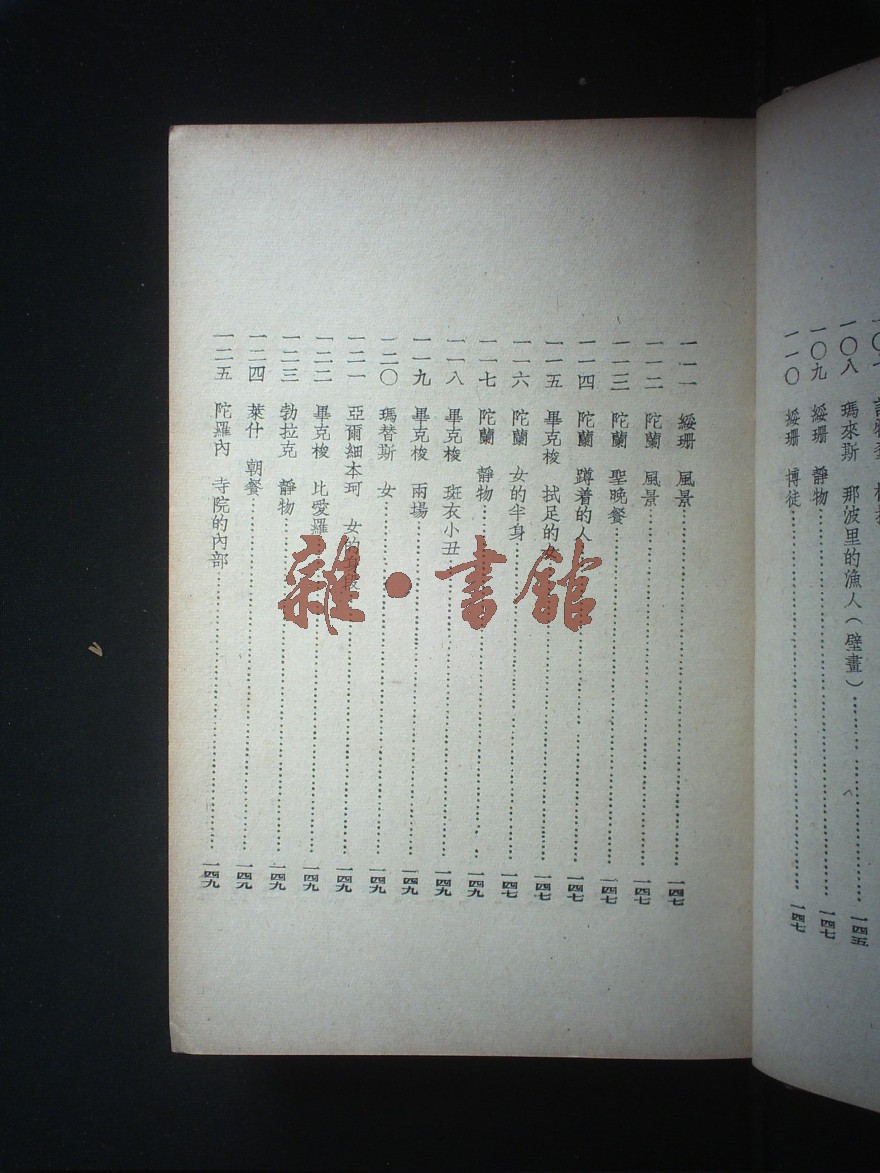 一〇八　瑪來斯　那波里的漁人(壁畫)……一四五
一〇九　綏珊　靜物……一四七
一一〇　綏珊　博徒……一四七
一一一　綏珊　風景……一四七
一一二　陀蘭　風景……一四七
一一三　陀蘭　聖晚餐……一四七
一一四　陀蘭　蹲着的人……一四七
一一五　畢克梭　拭足的女……一四七
一一六　陀蘭　女的半身……一四七
一一七　陀蘭　靜物……一四九
一一八　畢克梭　斑衣小丑……一四九
一一九　畢克梭　兩場……一四九
一二〇　瑪替斯　女……一四九
一二一　亞爾細本珂　女的……一四九
一二二　畢克梭　比愛羅……一四九
一二三　勃拉克　靜物……一四九
一二四　萊什　朝餐……一四九
一二五　陀羅內　寺院的內部……一四九
雜·書館